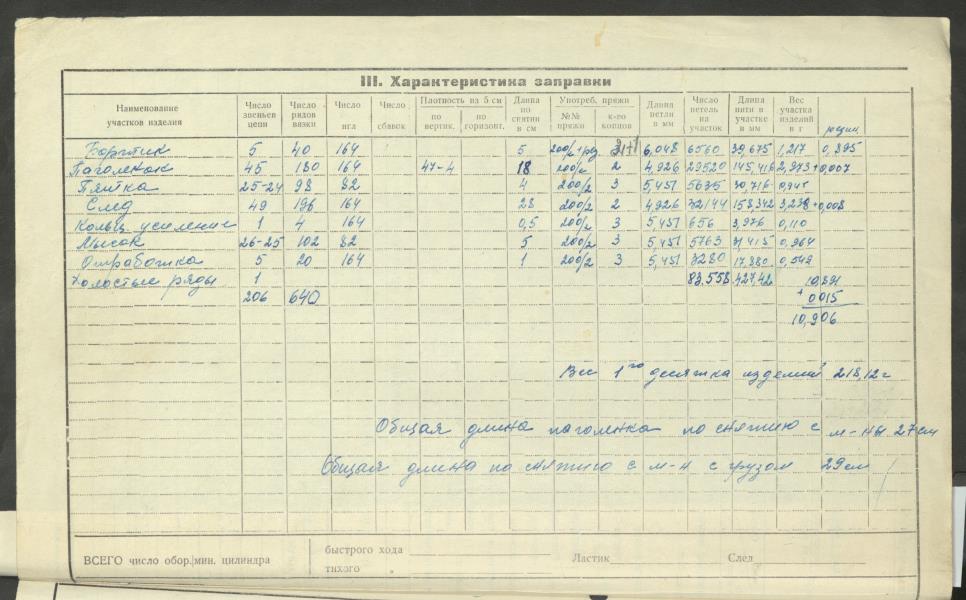 III. Характеристика заправки
Наименование участков изделия | Число звеньев цепи | Число рядов вязки | Число игл | Число сбавок | Плотность на 5 см по вертик. | по горизонт. | Длина по снятии в см | Употреб. пряжи №№ пряжи | к-во концов | Длина петли в мм | Число петель на участок | Длина нити в участке в мм | Вес участка изделий в г
Бортик 5 40 164 5 6,048 6560 39,675 1,217 0,895
Паголенок 45 180 164 47-4 18 200/2 2 4,926 29520 145,416 2,973 +0,007
Пятка 25-24 98 82 4 200/2 3 5,451 5635 30,716
След 49 196 164 28 200/2 2 4,926 32144 158,342 3,238 +0,008
Кольц. усиление 1 4 164 0,5 200/2 3 5,451 656 3,576 0,110
Мысок 26-25 102 82 5 200/2 3 5,451 5763 31,415 0,964
Отработка 5 20 164 1 200/2 3 5,451 3280 17,880 0,549
Холостые ряды 1 83.558 427,42 10,891
206 640 + 0015
10,906
Вес 1го десятка изделий 218,12 г
Общая длина паголенка по снятию с м-ны 27 см
Общая длина по снятию с м-н с грузом 29 см
ВСЕГО число обор./мин. цилиндра
быстрого хода
тихого
Ластик
След